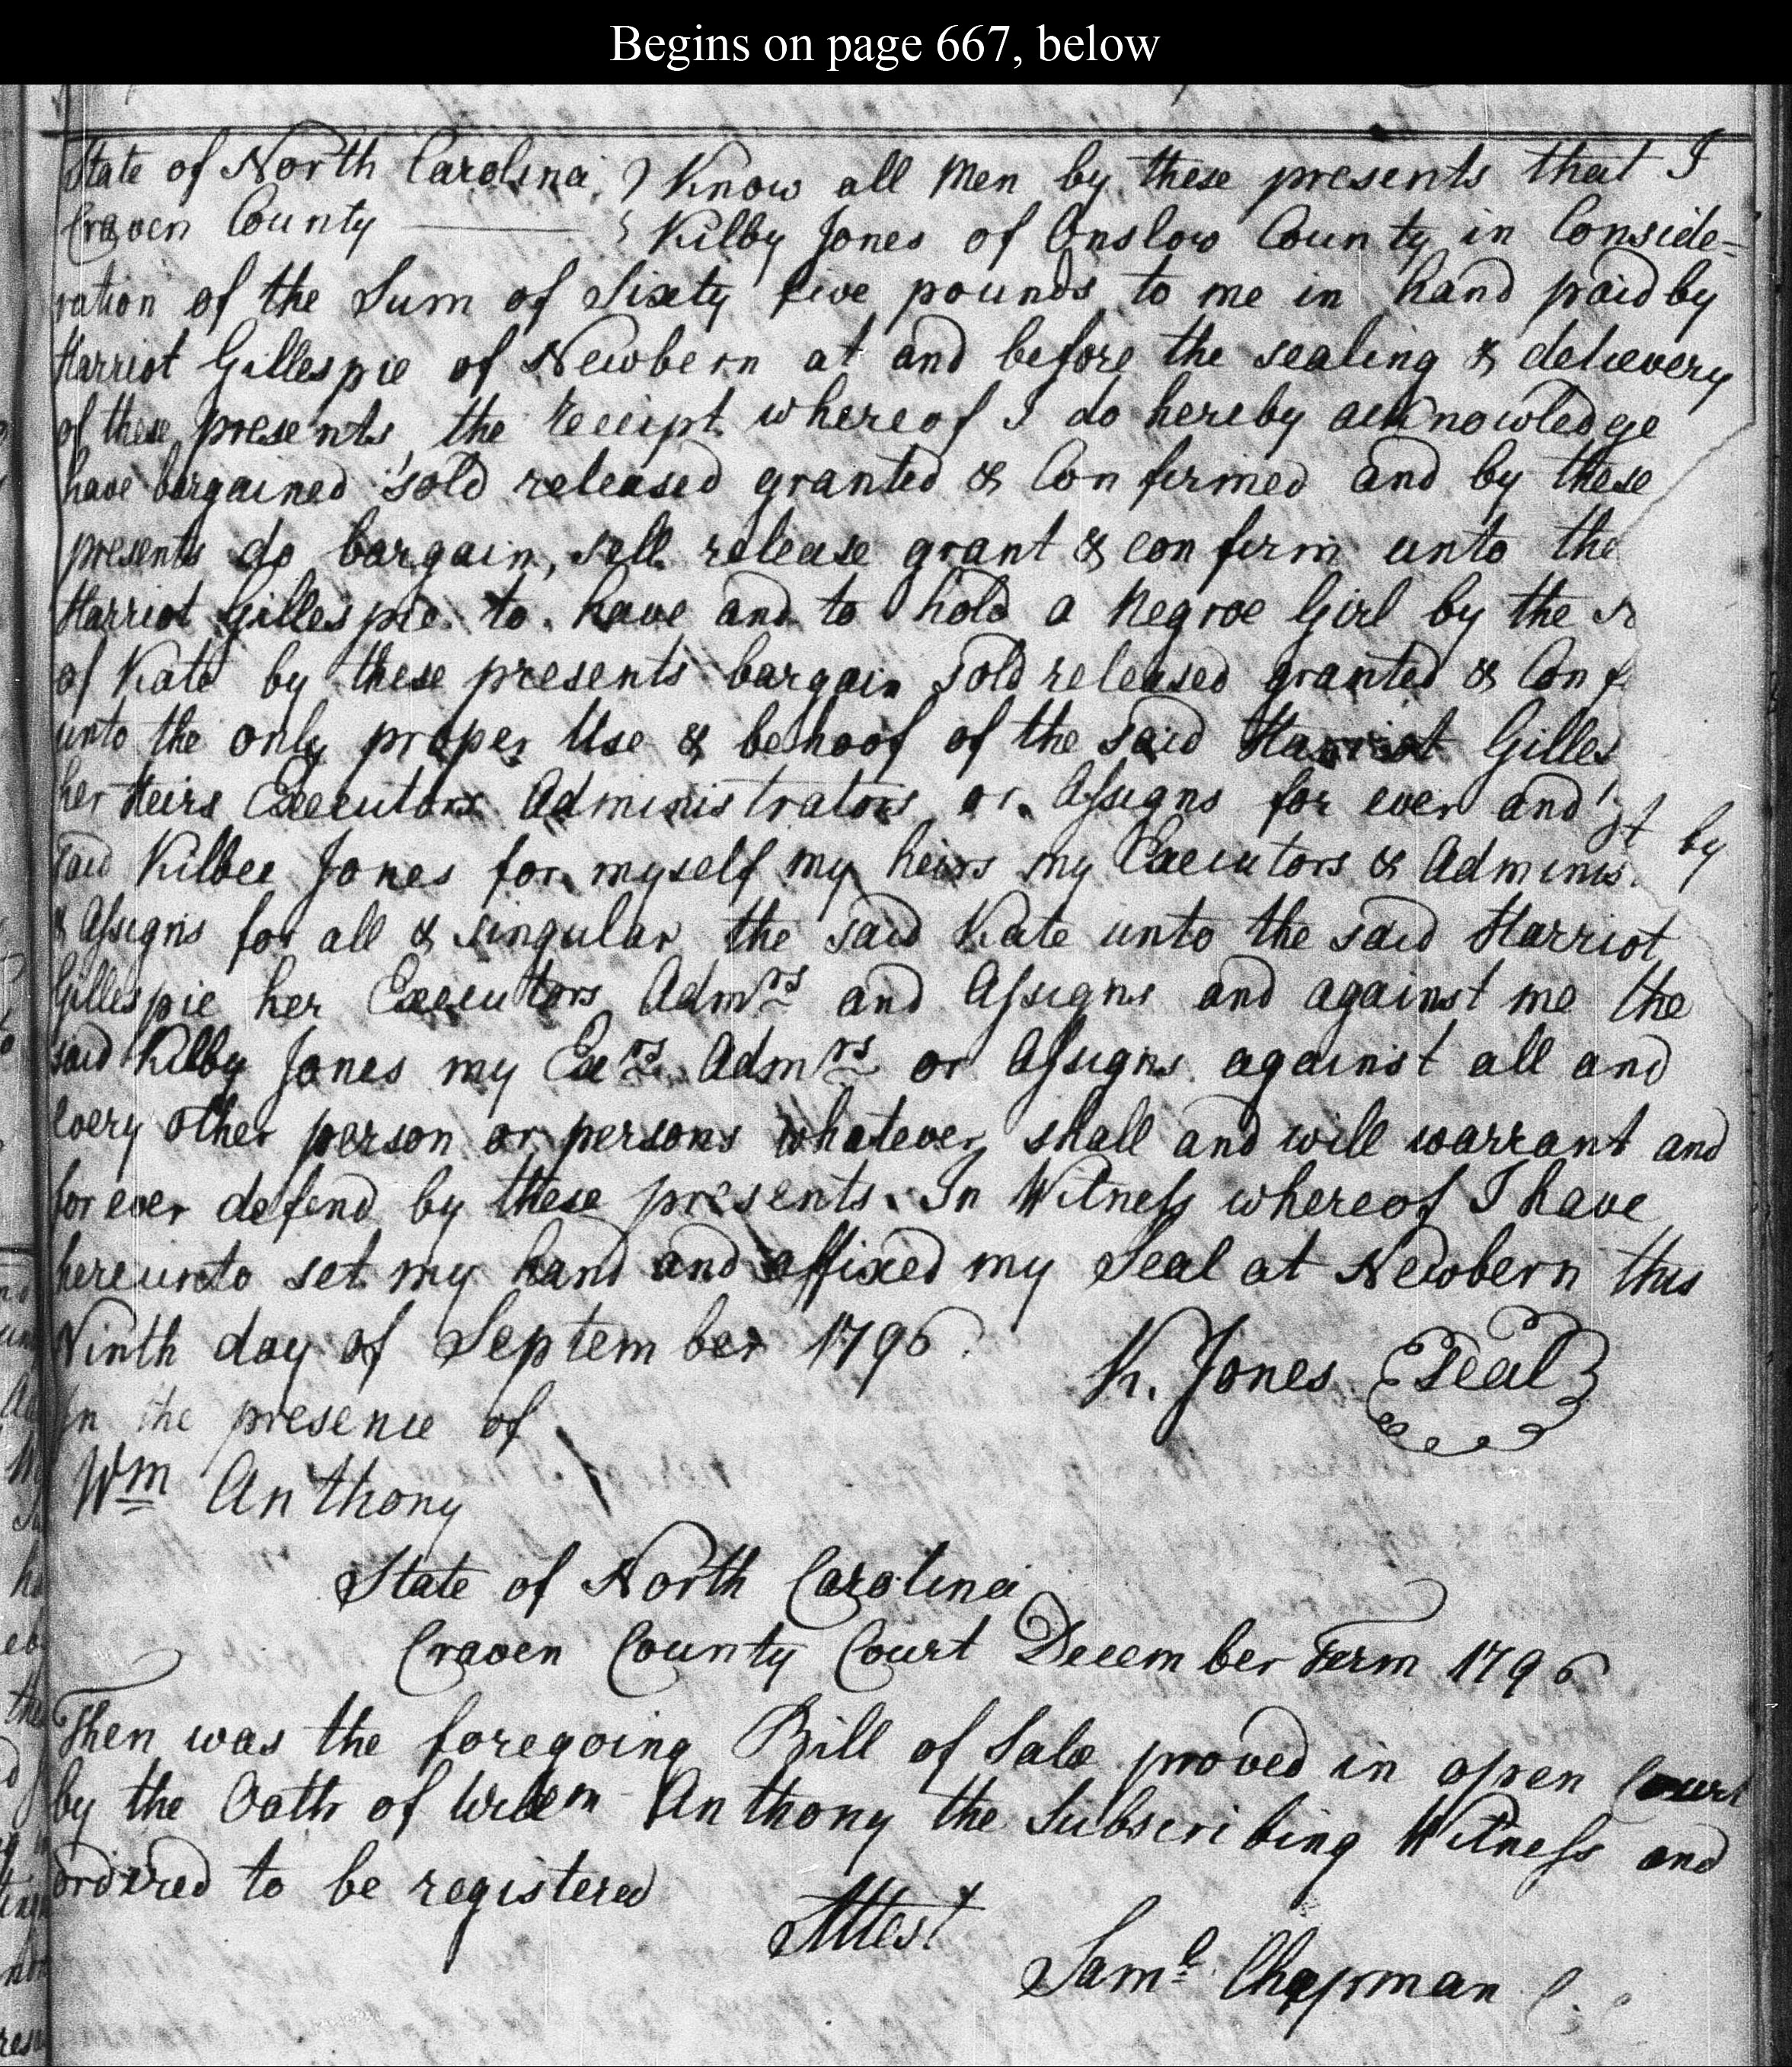 Begins on page 667, below
State of North Carolina, } Know all Men by these presents that I
Craven County ——— } Kilby Jones of Onslow County in Conside=
ration of the Sum of Sixty five pounds to me in hand paid by
Harriot Gillespie of Newbern at and before the sealing & delievery
of these presents, the receipt whereof I do hereby acknowledge
have bargained sold released granted & Confirmed and by these
presents do bargain, sell release grant & confirm unto the
Harriot Gillespie to have and to hold a Negroe Girl by the
of Kate by these presents bargain sold released granted & Conf
unto the only proper Use & behoof of the said Harriot Gilles
her Heirs Executors Administrators or Assigns for ever and
said Kilbee Jones for myself my heirs my Executors & Adminis by
& Assigns for all & singular the said Kate unto the said Harriot
Gillespie her Executors Admrs and Assigns and against me the
said Kilby Jones my Exrs Admrs or Assigns against all and
every other person or persons whatever shall and will warrant and
forever defend by these presents. In Witness whereof I have
hereunto set my hand and affixed my Seal at Newbern this
Ninth day of September 1796.
K. Jones Seal
In the presence of
Wm Anthony
State of North Carolina
Craven County Court December Term 1796
Then was the foregoing Bill of Sale proved in open Court
by the Oath of Anthony the Subscribing Witness and
ordered to be registered
Attest
Saml Chapman C.